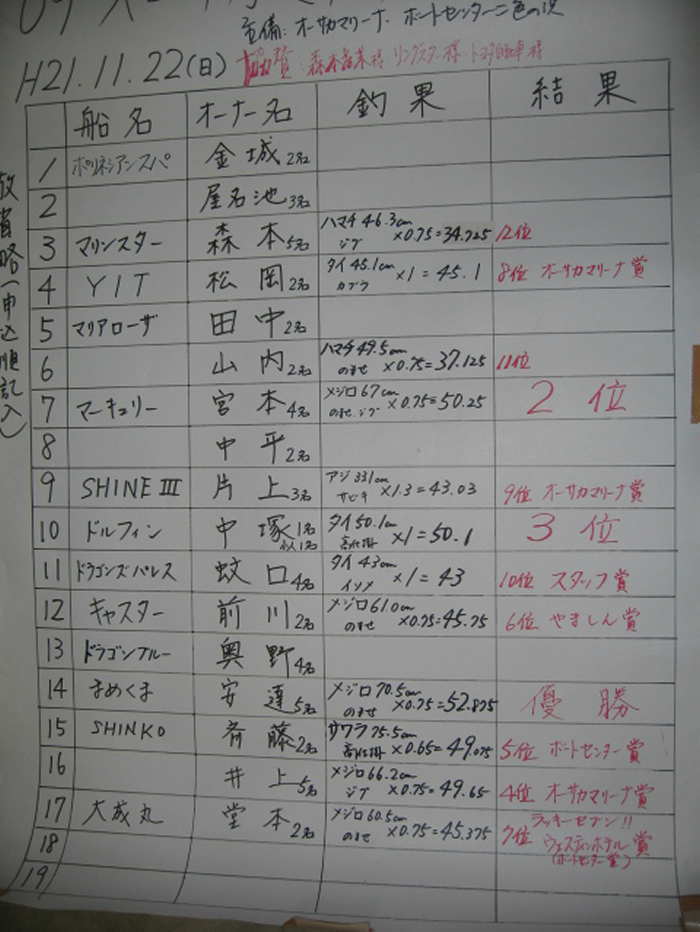 準備:オーサカマリーナ、ボートセンター二色の浜
H21.11.22(日) 協賛:森本産業様 リングスター様
船名 オーナー名 釣果 結果
1 ポリネシアンスパ 金城2名
2 屋名池3名
3 マリンスター 森本5名 ハマチ46.3cm ジグ ×0.75=34.725 12位
4 YIT 松岡2名 タイ45.1cm カブラ ×1=45.1 8位 オーサカマリーナ賞
5 マリアローザ 田中2名
6 山内2名 ハマチ49.5cm のませ ×0.75=37.125 11位
7 マーキュリー 宮本4名 メジロ67cm のませ、ジグ ×0.75=50.25 2位
8 中平2名
9 SHINE III 片上3名 アジ33.1cm サビキ ×1.3=43.03 9位 オーサカマリーナ賞
10 ドルフィン 中塚1名 タイ50.1cm 高仕掛 ×1=50.1 3位
11 ドラゴンズパレス 蚊口4名 タイ43cm イソメ ×1=43 10位 スタッフ賞
12 キャスター 前川2名 メジロ61.0cm のませ ×0.75=45.75 6位 やましん賞
13 ドラゴンブルー 奥野4名
14 まめくま 安達5名 メジロ70.5cm のませ ×0.75=52.875 優勝
15 SHINKO 斉藤2名 サワラ75.5cm 高仕掛 ×0.65=49.075 5位 ボートセンター賞
16 井上5名 メジロ66.2cm ジグ ×0.75=49.65 4位 オーサカマリーナ賞
17 大成丸 堂本2名 メジロ60.5cm のませ ×0.75=45.375 ラッキーセブン!! 7位 ウェスティンホテル賞
(ボートセンター賞)
18
19
敬省略(申込順記入)